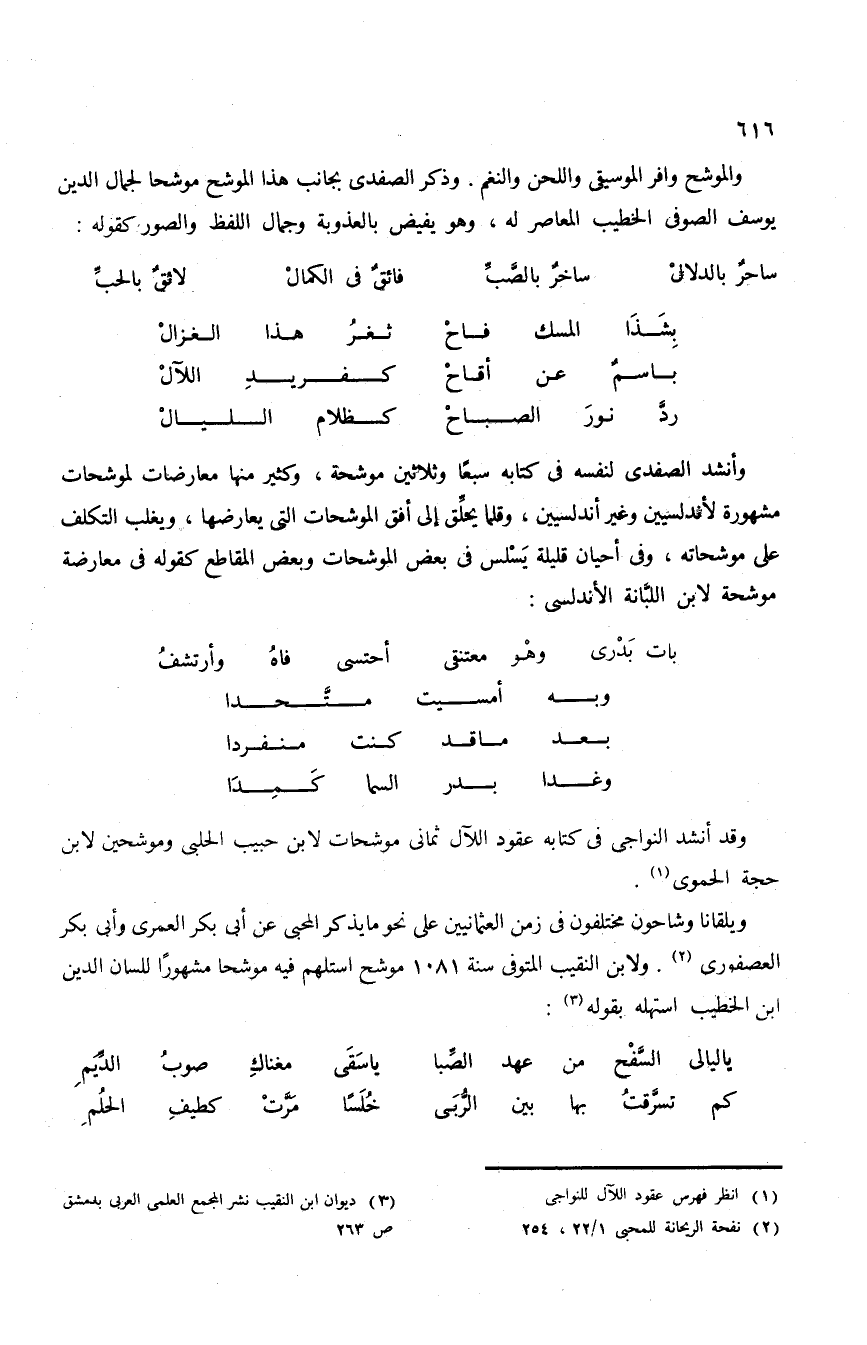 ٦١٦
والموشح وافر الموسيقى واللحن والنغم . وذكر الصفدى بجانب هذا الموشح موشحا لجمال الدين
يوسف الصوفى الخطيب المعاصر له ، وهو يفيض بالعذوبة وجمال اللفظ والصور كقوله :
ساحرٌ بالدلالْ ساخرٌ بالصَّبِّ فائقٌ فى الكمالْ لائقٌ بالحبِّ
بِشَذَا المسك فاحْ ثغرُ هذا الغزالْ
باسمٌ عن أقاحْ كفريدِ اللآلْ
ردَّ نورَ الصباحْ كظلام الليالْ
وأنشد الصفدى لنفسه فى كتابه سبعًا وثلاثين موشحة ، وكثير منها معارضات لموشحات
مشهورة لأندلسيين وغير أندلسيين ، وقلما يحلِّق إلى أفق الموشحات التى يعارضها ، ويغلب التكلف
على موشحاته ، وفى أحيان قليلة يَسْلس فى بعض الموشحات وبعض المقاطع كقوله فى معارضة
موشحة لابن اللبَّانة الأندلسى :
بات بَدْرى وهْو معتنقى أحتسى فاهُ وأرتشفُ
وبه أمسيت متَّحدا
بعد ماقد كنت منفردا
وغدا بدر السما كَمِدَا
وقد أنشد النواجى فى كتابه عقود اللآل ثمانى موشحات لابن حبيب الحلبى وموشحين لابن
حجة الحموى(١) .
ويلقانا وشاحون مختلفون فى زمن العثمانيين على نحو مايذكر المحبى عن أبى بكر العمرى وأبى بكر
العصفورى (٢) . ولابن النقيب المتوفى سنة ١٠٨١ موشح استلهم فيه موشحا مشهورًا للسان الدين
ابن الخطيب استهله بقوله(٣) :
ياليالى السَّفْح من عهد الصِّبا ياسَقَى مغناكِ صوبُ الدِّيَمِ
كم تسرَّقتُ بها بين الرُّبَى خُلَسًا مَرَّتْ كطيفِ الحلُمِ
(١) انظر فهرس عقود اللآل للنواجى
(٢) نفحة الريحانة للمحبى ٢٢/١ ، ٢٥٤
(٣) ديوان ابن النقيب نشر المجمع العلمى العربى بدمشق
ص ٢٦٣